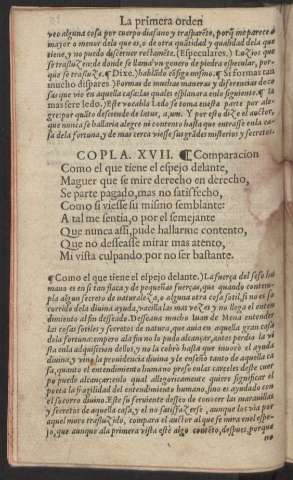 La primera orden
veo alguna cosa por cuerpo diafano y trasparēte, porq̃ me parece ò
mayor o menor dela que es, o de otra quātidad y qualidad dela que
tiene, y no puedo discerner rectamēte. (Especulares.) Luzios que
se trasluzen: de donde se llama vn genero de piedra especular, por-
que se trasluze. ¶ Dixe.) hablādo cōsigo mismo. ¶ Si formas tan
mucho dispares) formas de muchas maneras y diferencias de co
sas que vio en aquella casa: las quales esplanara enlo seguiente. ¶
mas sere ledo.) Este vocablo Ledo se toma enesta parte por ale-
gre: por quāto desciende de
que nunca se hallaria alegre ni contento hasta que entrasse enla ca-
sa dela fortuna, y de mas cerca viesse sus grādes misterios y secretos.
COPLA. XVII. ¶ Comparacion
Como el que tiene el espejo delante,
Maguer que se mire derecho en derecho,
Se parte pagado, mas no satisfecho,
Como si viesse su mismo semblante:
A tal me sentia, o por el semejante
Que nunca assi, pude hallarme contento,
Que no desseasse mirar mas atento,
Mi vista culpando por no ser bastante.
¶ Como el que tiene el espejo delante.) La fuerça del seso hu
mano es en si tan flaca y de pequeñas fuerças, que quando contem-
pla algun secreto de naturaleza, o alguna otra cosa sotil, si no es so
corrido dela diuina ayuda, vacilla las mas vezes y no llega el enten
dimiento al fin desseado. Desseaua mucho Iuan de Mena entender
las cosas sotiles y secretos de natura, que auia en aquella gran casa
dela fortuna: empero ala fin no lo pudo alcançar, antes perdio la vi
sta enla adquisicion dellos, y no la cobrò hasta que inuocò el ayuda
diuina, y vino la prouidencia diuina y le enseño tanto de aquella ca
sa, quanto el entendimiento humano preso enlas carceles deste cuer
po puede alcançar: enlo qual allegoricamente quiere significar el
poeta la fragilidad del entendimiento humano, sino es ayudado con
el socorro diuino. Este su feruiente desseo de conocer las marauillas
y secretos de aquella casa, y el no satisfazerse, aunque los via por
aquel muro trasluzido, compara el auctor al que se mira enel espe-
jo, que aunque ala primera vista estè algo contēto, despues, porque
no